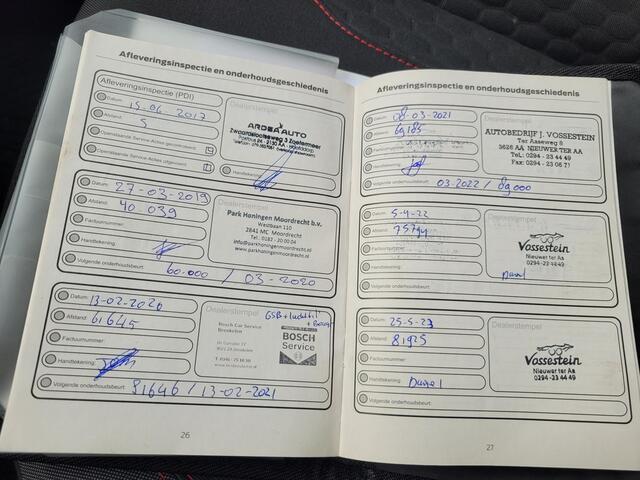 Afleveringsinspectie en onderhoudsgeschiedenis
Afleveringsinspectie (PDI)
Datum: 15-06-2017
Afstand: 5
Openstaande Service-Acties uitgevoerd:
Openstaande Service-Acties uitgevoerd:
Handtekening:
Dealerstempel
ARDEA AUTO
Zwaardslootseweg 3 Zoetermeer
Datum: 27-03-2019
Afstand: 40.039
Factuurnummer:
Handtekening:
Volgende onderhoudsbeurt: 60.000 / 03-2020
Dealerstempel
Park Honingen Moordrecht b.v.
Westbaan 110
2841 MC Moordrecht
Tel.: 0182 - 20 00 04
info@parkhoningenmoordrecht.nl
www.parkhoningenmoordrecht.nl
Datum: 13-02-2020
Afstand: 61645
Factuurnummer:
Handtekening:
Volgende onderhoudsbeurt: 81646 / 13-02-2021
Dealerstempel
Bosch Car Service
Breukelen
BOSCH
Service
26
Afleveringsinspectie en onderhoudsgeschiedenis
Datum: 08-03-2021
Afstand: 69185
Volgende onderhoudsbeurt: 03-2022 / 89000
Dealerstempel
AUTOBEDRIJF J. VOSSESTEIN
Ter Aaseweg 8
3626 AA NIEUWER TER AA
Tel.: 0294 - 23 44 49
Fax: 0294 - 23 06 71
Datum: 5-4-22
Afstand:
Factuurnummer:
Handtekening:
Volgende onderhoudsbeurt:
Dealerstempel
Vossestein
Nieuwer ter Aa
0294-23 44 49
Datum: 25-5-23
Afstand: 81925
Factuurnummer:
Handtekening:
Volgende onderhoudsbeurt:
Dealerstempel
Vossestein
Nieuwer ter Aa
0294-23 44 49
27